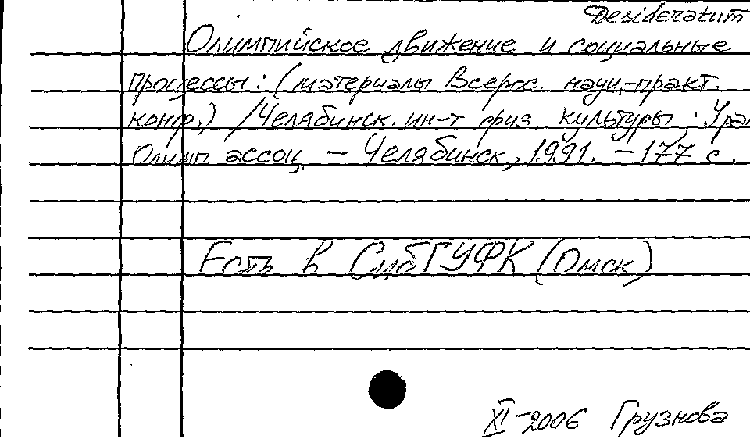 Desideratum
Олимпийское движение и социальные
процессы: (материалы Всерос. науч.-практ.
конф.) / Челябинск. ин-т физ. культуры; Урал
Олимп ассоц. – Челябинск, 1991. – 177 с.
Есть в СибГУФК (Омск)
XI-2006 Грузнова